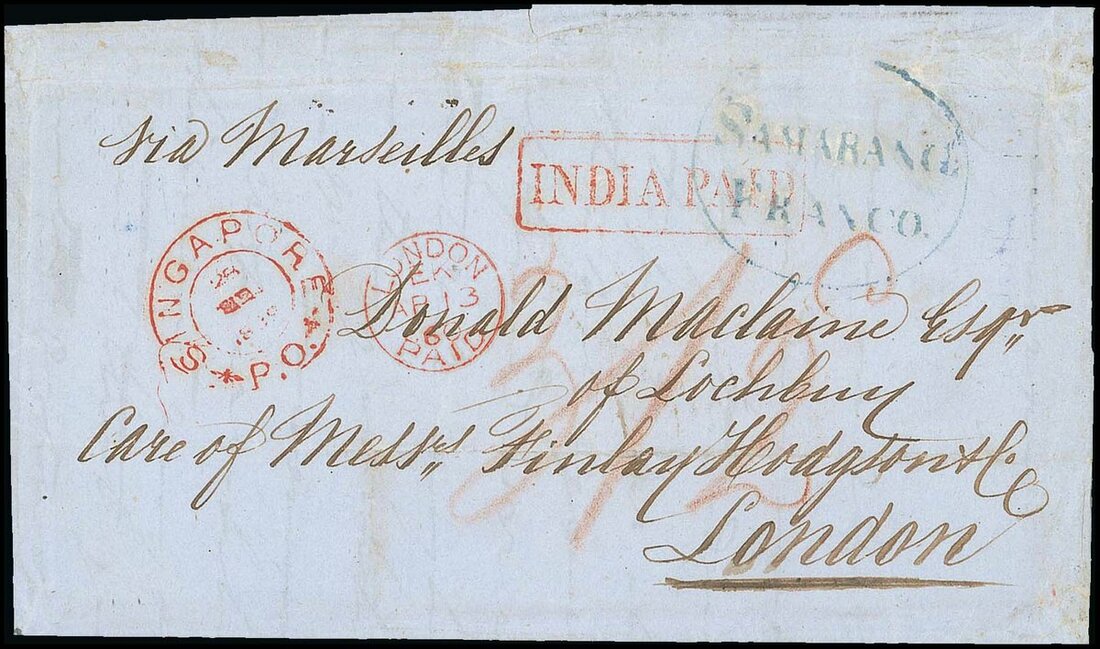 via Marseilles
INDIA PAID
SAMARANG
FRANCO.
SINGAPORE
P.O.
LONDON
AP 13
60
PAID
Donald Maclaine Esqr
of Lochbuy
Care of Messrs Finlay Hodgson & Co
London